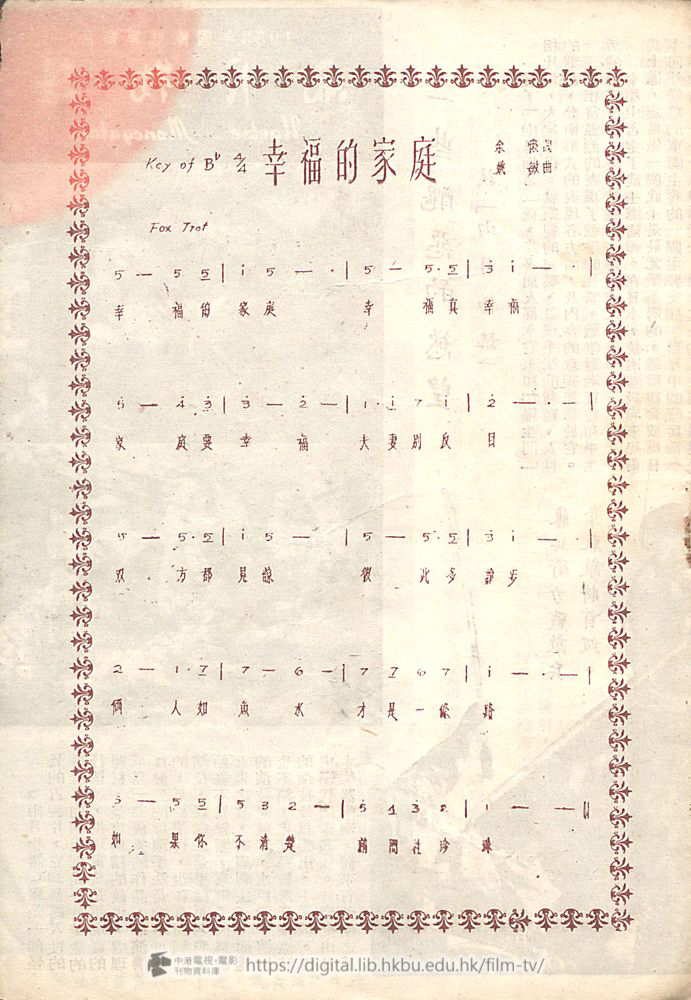 Key of B♭ 4/4 幸福的家庭
余懷詞
姚敏曲
Fox Trot
5 — 5 5 | i 5 — · | 5 — 5·5 | 3 i — · |
幸 福的 家庭 幸 福真 幸福
5 — 4 3 | 3 — 2 — | 1 · i 7 i | 2 — · — |
家 庭要 幸 福 夫妻別反目
5 — 5·5 | i 5 — | 5 — 5·5 | 3 i — · |
双 方都 見諒 彼 此多 讓步
2 — 1·7 | 7 — 6 — | 7 7 6 7 | i — · — |
倆 人如 魚 水 才是一條 路
5 — 5 5 | 5 3 2 — | 5 4 3 2 | 1 — — ||
如 果你 不清楚 請問汪玲 琳
中港電視·電影
刊物資料庫
https://digital.lib.hkbu.edu.hk/film-tv/